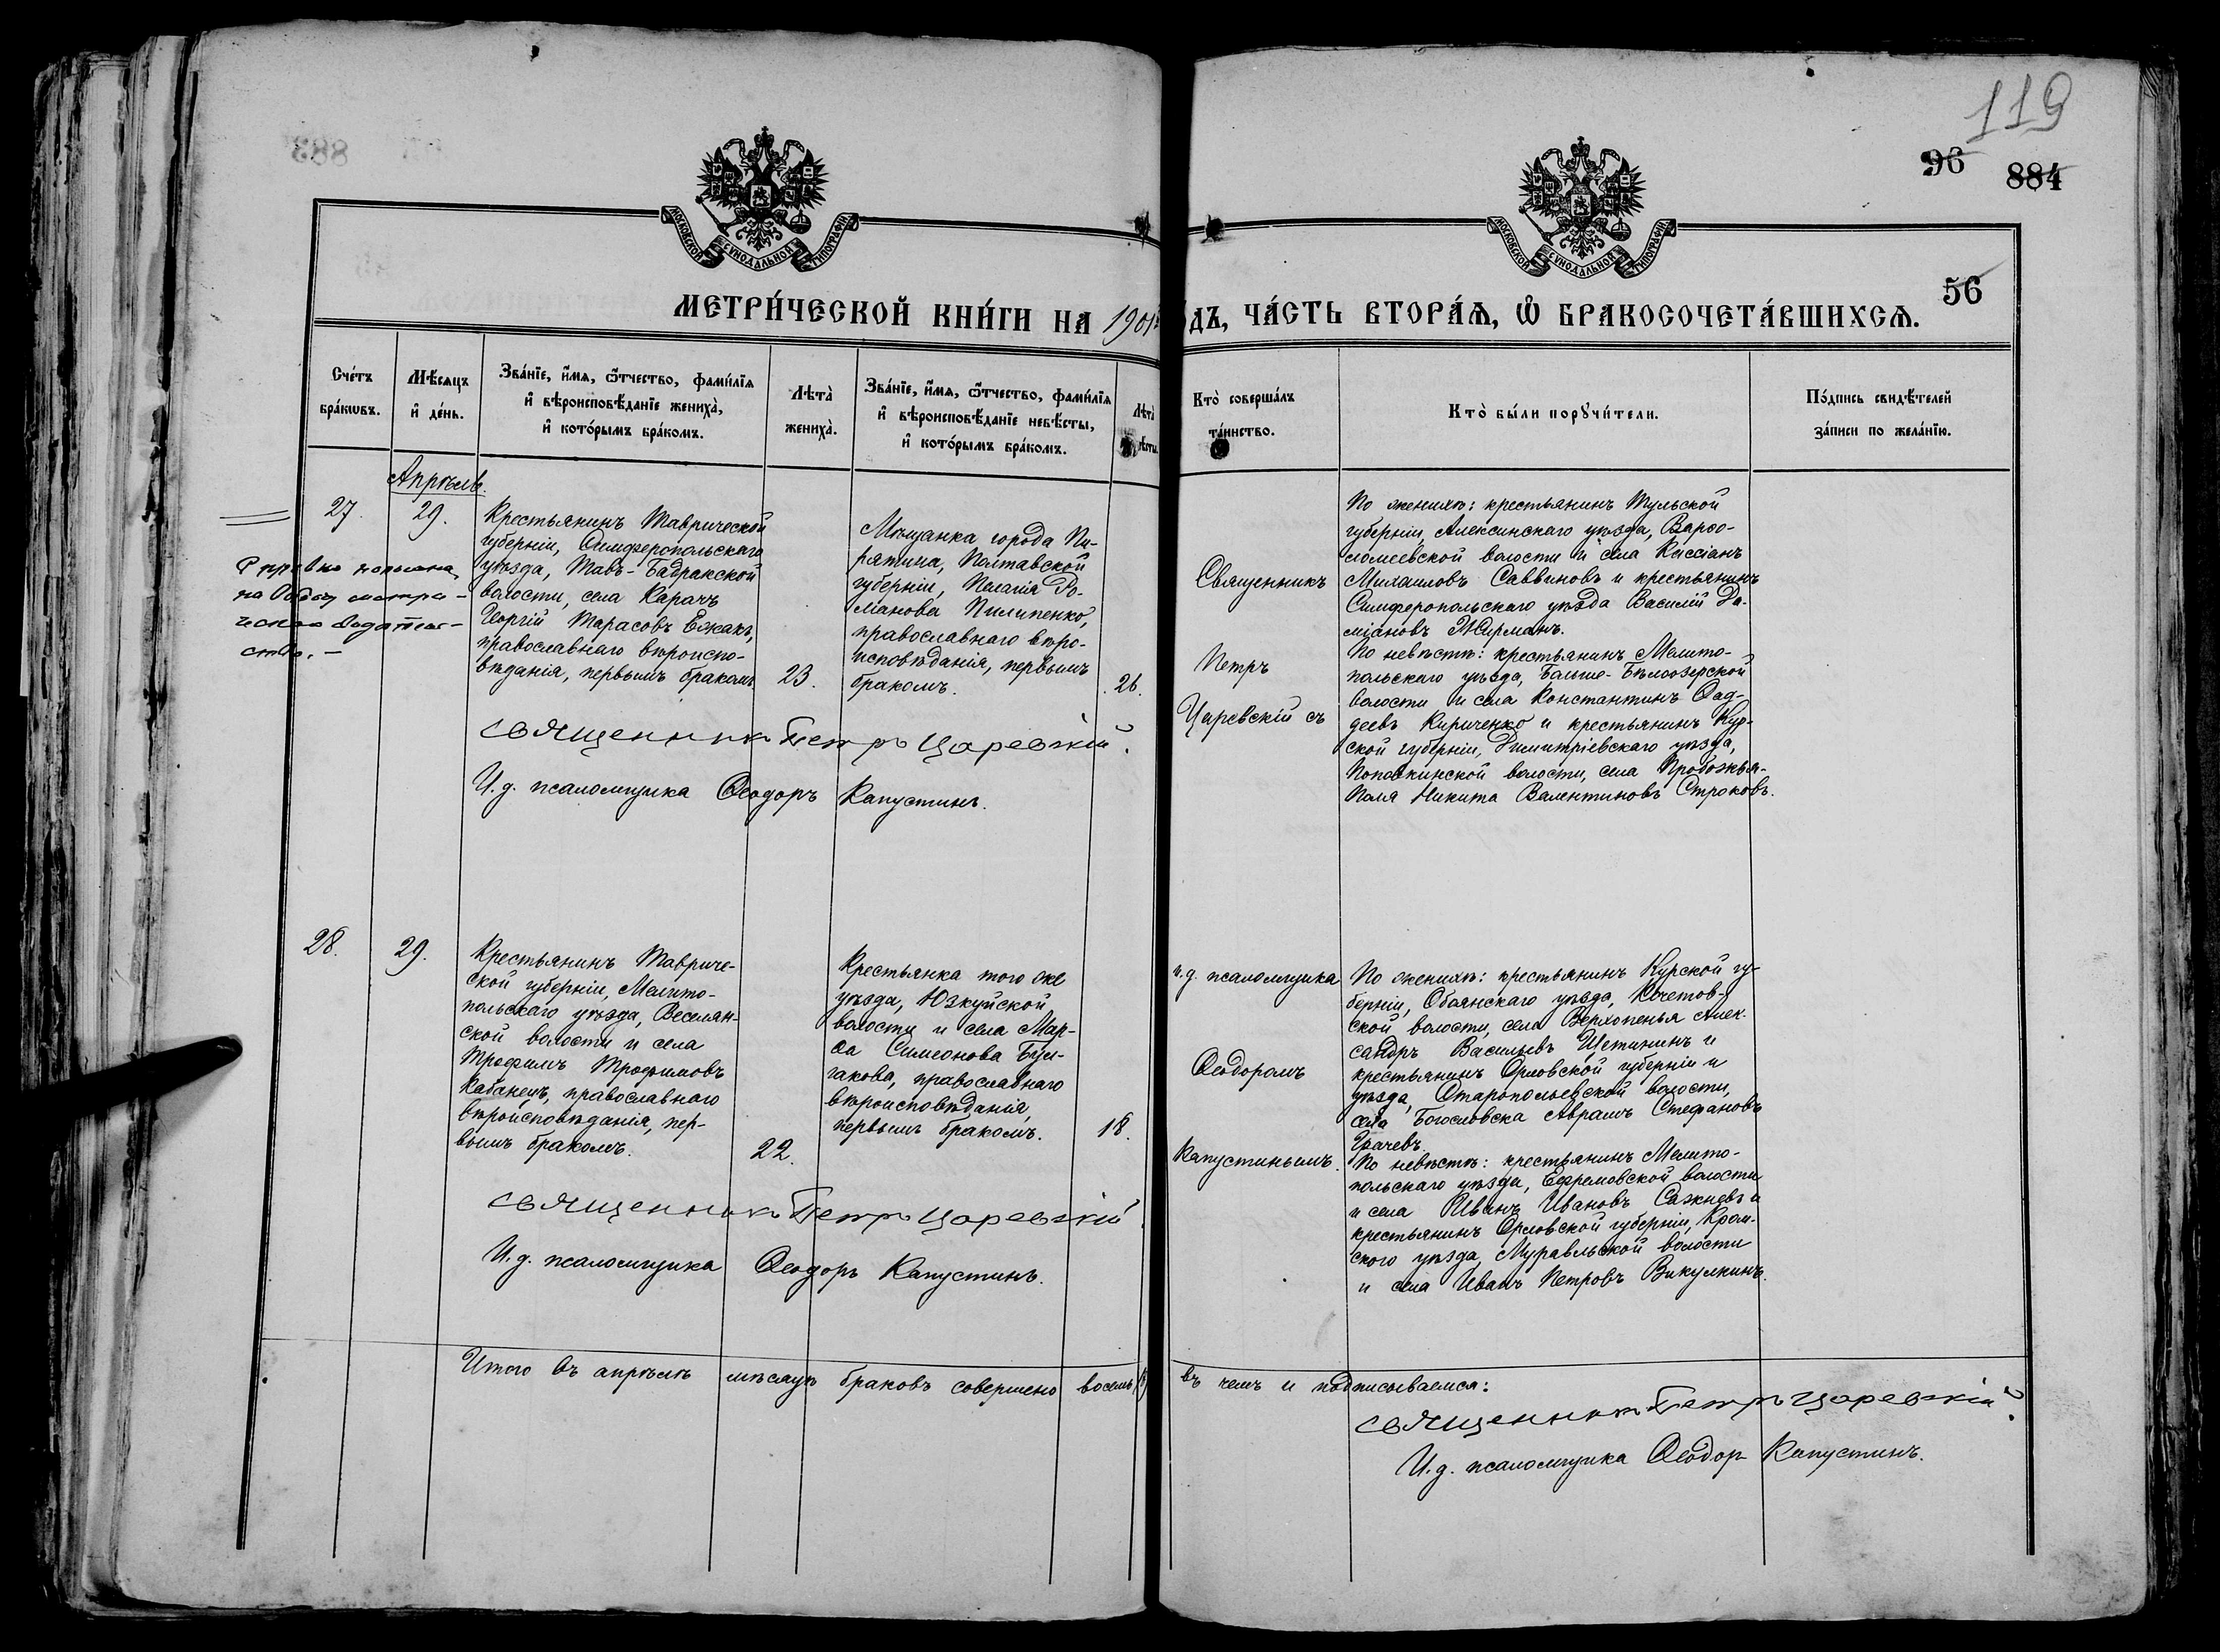 119
96 884
56
МОСКОВСКОЙ СѴНОДАЛЬНОЙ ТИПОГРАФІИ
МОСКОВСКОЙ СѴНОДАЛЬНОЙ ТИПОГРАФІИ
МЕТРИ́ЧЕСКОЙ КНИ́ГИ НА 1901
ДЪ, ЧА́СТЬ ВТОРА́Ѧ, Ѿ БРАКОСОЧЕТА́ВШИХСѦ.
Сче́тъ
бра́кωвъ.
Мѣ́сяцъ
и҆ де́нь.
Зва́нїе, и҆́мѧ, ѻ҆́тчество, фами́лїѧ
и҆ вѣроисповѣ́данїе жениха̀,
и҆ кото́рымъ бра́комъ.
Лѣта̀
жениха̀.
Зва́нїе, и҆́мѧ, ѻ҆́тчество, фами́лїѧ
и҆ вѣроисповѣ́данїе невѣ́сты,
и҆ кото́рымъ бра́комъ.
Лѣта̀
вѣсты.
Кто̀ соверша́лъ
та́инство.
Кто̀ бы́ли порꙋчи́тели.
По́дпись свидѣ́телей
за́писи по жела́нїю.
Апрѣль.
27.
29.
Крестьянинъ Таврической
губерніи, Симферопольскаго
уѣзда, Тавъ-Бадракской
волости, села Карачъ
Георгій Тарасовъ Ежакъ,
православнаго вѣроиспо-
вѣданія, первымъ бракомъ
23.
Мѣщанка города Пи-
рятина, Полтавской
губерніи, Пелагія Ро-
манова Пилипенко,
православнаго вѣро-
исповѣданія, первымъ
бракомъ.
26.
священникъ Петръ Царевскій.
И. д. псаломщика Ѳеодоръ Капустинъ.
Священникъ
Петръ
Царевскій съ
По женихѣ: крестьянинъ Тульской
губерніи, Алексинскаго уѣзда, Варѳо-
ломеевской волости и села Кассіанъ
Михаиловъ Саввиновъ и крестьянинъ
Симферопольскаго уѣзда Василій Да-
міановъ Жирманъ.
По невѣстѣ: крестьянинъ Мелито-
польскаго уѣзда, Больше-Бѣлозерской
волости и села Константинъ Ѳад-
деевъ Кириченко и крестьянинъ Кур-
ской губерніи, Димитріевскаго уѣзда,
Поповкинской волости, села Пробожья-
Поля Никита Валентиновъ Строковъ.
28.
29.
Крестьянинъ Тавриче-
ской губерніи, Мелито-
польскаго уѣзда, Веселян-
ской волости и села
Трофимъ Трофимовъ
Кабанецъ, православнаго
вѣроисповѣданія, пер-
вымъ бракомъ.
22.
Крестьянка того же
уѣзда, Юзкуйской
волости и села Мар-
ѳа Симеонова Бул-
гакова, православнаго
вѣроисповѣданія,
первымъ бракомъ.
18.
священникъ Петръ Царевскій
И. д. псаломщика Ѳеодоръ Капустинъ.
и. д. псаломщика
Ѳеодоромъ
Капустинымъ.
По женихѣ: крестьянинъ Курской гу-
берніи, Обоянскаго уѣзда, Кочетов-
ской волости, села Верхопенья Алек-
сандръ Васильевъ Щетининъ и
крестьянинъ Орловской губерніи и
уѣзда, Старопольевской волости,
села Богословска Аврамъ Стефановъ
Грачевъ.
По невѣстѣ: крестьянинъ Мелито-
польскаго уѣзда, Ефремовской волости
и села Иванъ Ивановъ Сажневъ и
крестьянинъ Орловской губерніи, Кром-
ского уѣзда, Муравльской волости
и села Иванъ Петровъ Викулкинъ.
Итого въ апрѣлѣ мѣсяцѣ браковъ совершено восемь (8)
въ чемъ и подписываемся:
священникъ Петръ Царевскій.
И. д. псаломщика Ѳеодоръ Капустинъ.